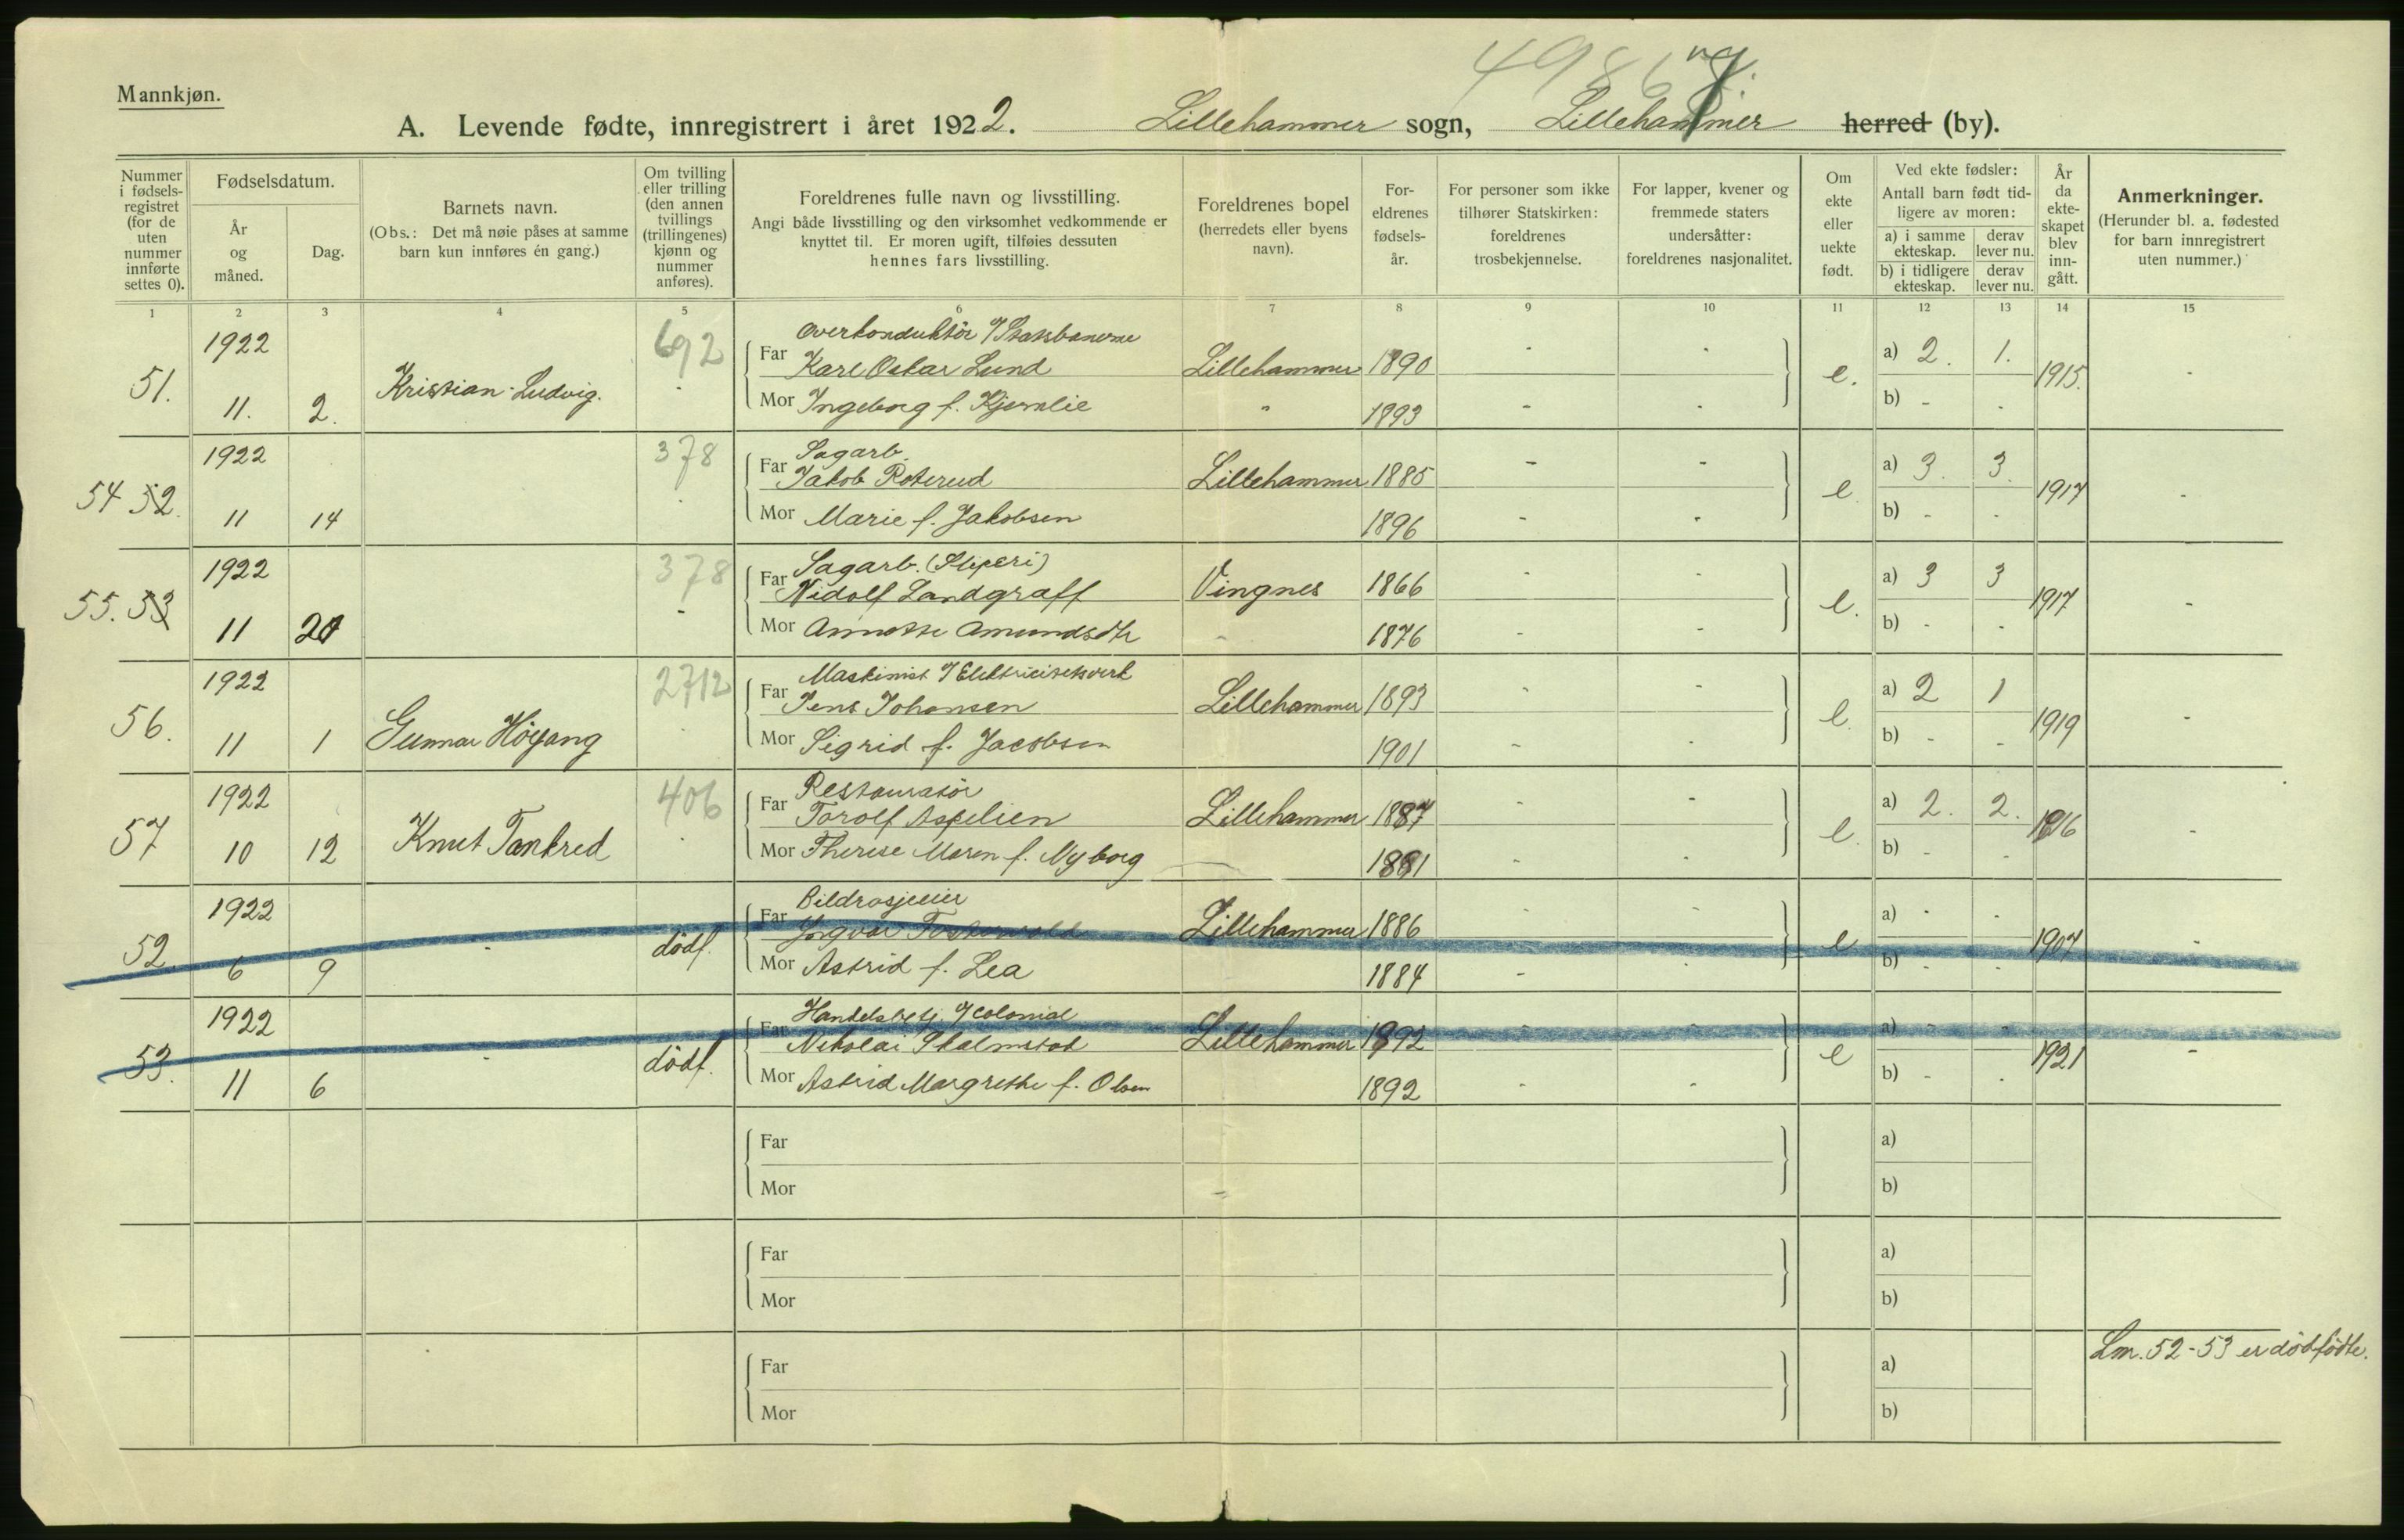 4986 7.
Mannkjøn.
A. Levende fødte, innregistrert i året 1922. Lillehammer sogn, Lillehammer herred (by).
Nummer i fødsels-registret (for de uten nummer innførte settes 0).
Fødselsdatum.
År og måned.
Dag.
Barnets navn.
(Obs.: Det må nøie påses at samme barn kun innføres én gang.)
Om tvilling eller trilling (den annen tvillings (trillingenes) kjønn og nummer anføres).
Foreldrenes fulle navn og livsstilling.
Angi både livsstilling og den virksomhet vedkommende er knyttet til. Er moren ugift, tilføies dessuten hennes fars livsstilling.
Foreldrenes bopel (herredets eller byens navn).
For-eldrenes fødsels-år.
For personer som ikke tilhører Statskirken: foreldrenes trosbekjennelse.
For lapper, kvener og fremmede staters undersåtter: foreldrenes nasjonalitet.
Om ekte eller uekte født.
Ved ekte fødsler:
Antall barn født tid-ligere av moren:
a) i samme ekteskap. derav lever nu.
b) i tidligere ekteskap. derav lever nu.
År da ekte-skapet blev inn-gått.
Anmerkninger.
(Herunder bl. a. fødested for barn innregistrert uten nummer.)
1 2 3 4 5 6 7 8 9 10 11 12 13 14 15
1922 692 Overkonduktör v/Statsbanerne
51. Far Karl Oskar Lund Lillehammer 1890 - - e. a) 2. 1. 1915. -
11. 2. Kristian Ludvig. - Mor Ingeborg f. Kjernlie " 1893 - - b) - -
1922 378 Sagarb.
54 52. Far Jakob Roterud Lillehammer 1885 - - e. a) 3. 3. 1917 -
11 14 - Mor Marie f. Jakobsen 1896 - - b) - -
1922 378 Sagarb. (Sliperi)
55. 53 Far Nidolf Landgraff Vingnes 1866 - - e. a) 3 3 1917 -
11 20 - Mor Annette Amundsdtr - 1876 - - b) - -
1922 2712 Maskinist v/Elektricitetsverk
56. Far Jens Johansen Lillehammer 1893 - - e. a) 2 1 1919 -
11 1 Gunnar Höyang - Mor Sigrid f. Jacobsen 1901 - - b) - -
1922 406 Restauratör
57 Far Torolf Aspelien Lillehammer 1887 - - e. a) 2. 2. 1916 -
10 12 Knut Tankred - Mor Therese Maren f. Nyborg 1881 - - b) - -
1922 Bildrosjeeier
52. Far Yngvar Lillehammer 1886 - - e a) - - 1907 -
6 9 - dödf. Mor Astrid f. Lea 1884 - - b) - -
1922 Handelsbetj. v/colonial
53. Far Nikolai Skalmstad Lillehammer 1892 - - e a) - - 1921 -
11 6 - dödf. Mor Astrid Margrethe f. Olsen 1892 - - b) - -
Far a)
Mor b)
Far a)
Mor b)
Lnr. 52-53 er dödfödte.
Far a)
Mor b)